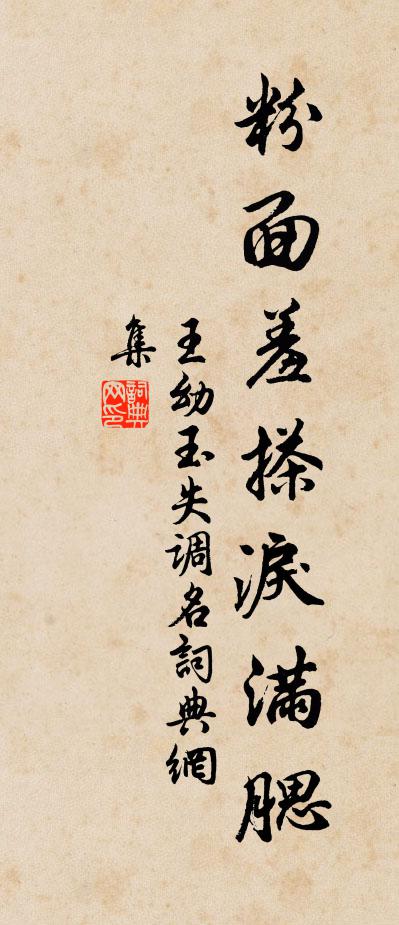 粉面羞搽淚满腮
王幼玉失调名詞典網
集
詞典网印